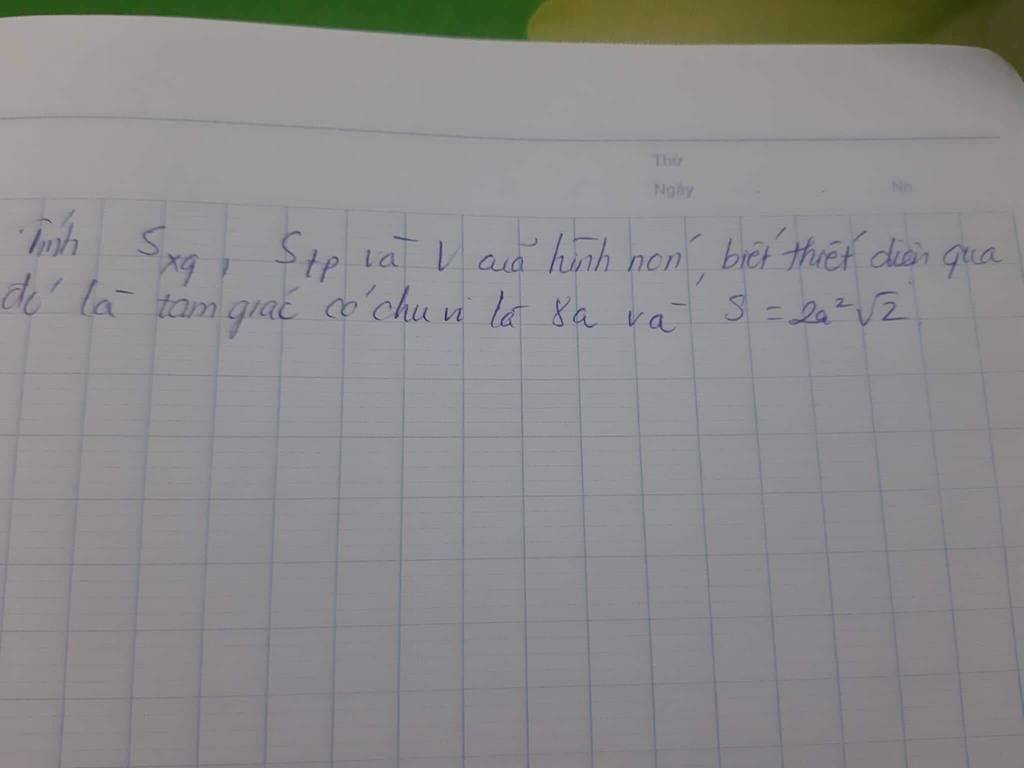 Thứ
Ngày No
Tính Sxq, Stp và V của hình nón, biết thiết diện qua
đó là tam giác có chu vi là 8a và S = 2a²√2